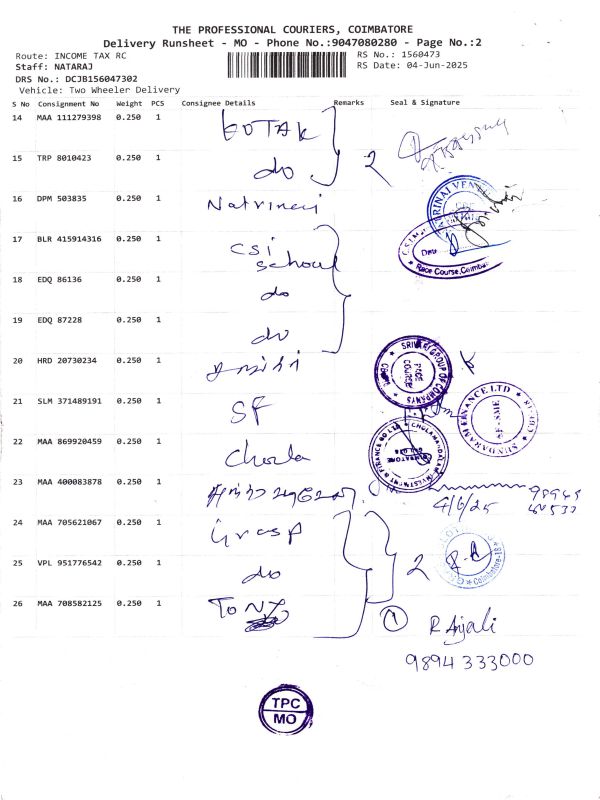 THE PROFESSIONAL COURIERS, COIMBATORE
Delivery Runsheet - MO - Phone No.:9047080280 - Page No.:2
Route: INCOME TAX RC
RS No.: 1560473
Staff: NATARAJ
RS Date: 04-Jun-2025
DRS No.: DCJB156047302
Vehicle: Two Wheeler Delivery
S No Consignment No Weight PCS Consignee Details Remarks Seal & Signature
14 MAA 111279398 0.250 1 KOTAK
15 TRP 8010423 0.250 1 do 2
16 DPM 503835 0.250 1 Natrinai
17 BLR 415914316 0.250 1 CSi School
18 EDQ 86136 0.250 1 do
19 EDQ 87228 0.250 1 do
Race Course, Coimba
20 HRD 20730234 0.250 1
SRIVARI GROUP OF COMPANIES
RACE COURSE
21 SLM 371489191 0.250 1 SF
SUNDARAM FINANCE LTD
SF-SME
22 MAA 869920459 0.250 1 Chola
CHOLAMANDALAM INVESTMENT & FINANCE CO LTD
23 MAA 400083878 0.250 1
4/6/25
24 MAA 705621067 0.250 1 Grasp
25 VPL 951776542 0.250 1 do 2
Coimbatore-18
26 MAA 708582125 0.250 1 TONZ 1 R Anjali
9894 333000
TPC
MO